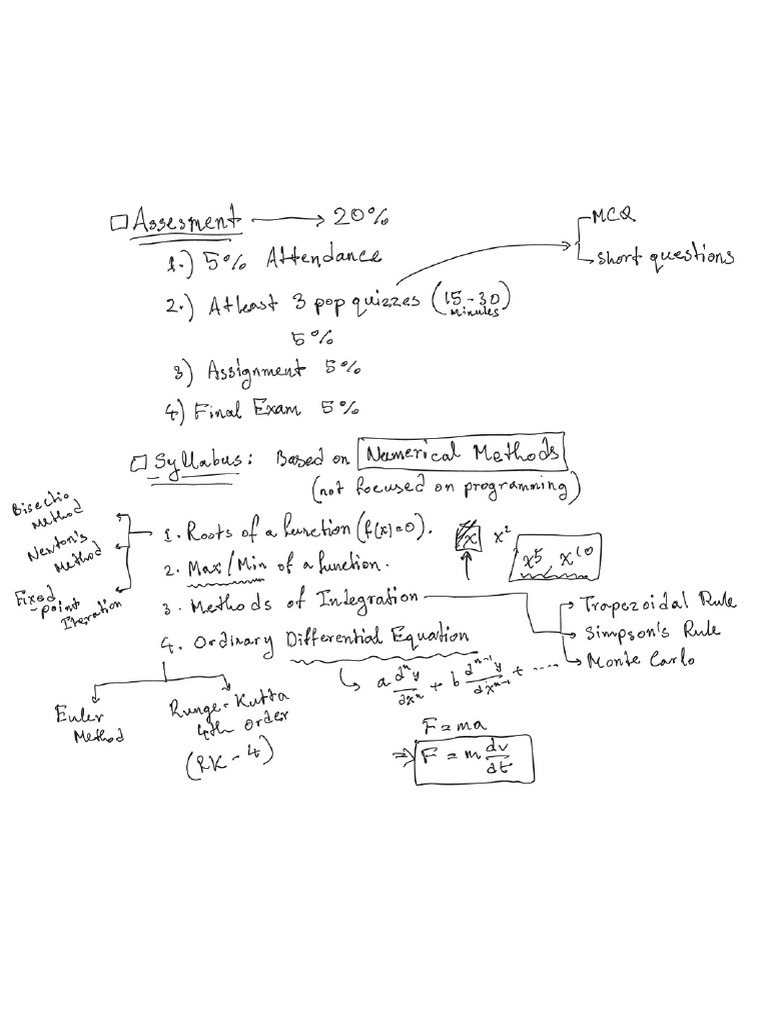 Assesment → 20%
1.) 5% Attendance
2.) Atleast 3 pop quizzes (15-30 minutes)
5%
MCQ
short questions
3) Assignment 5%
4) Final Exam 5%
Syllabus: Based on Numerical Methods
(not focused on programming)
1. Roots of a function (f(x)=0).
Bisectio Method
Newton's Method
Fixed-point Iteration
x x² x⁵, x¹⁰
2. Max/Min of a function.
3. Methods of Integration
Trapezoidal Rule
Simpson's Rule
Monte Carlo
4. Ordinary Differential Equation
a dⁿy/dxⁿ + b dⁿ⁻¹y/dxⁿ⁻¹ + ....
Euler Method
Runge-Kutta
4th Order
(RK-4)
F = ma
⇒ F = m dv/dt